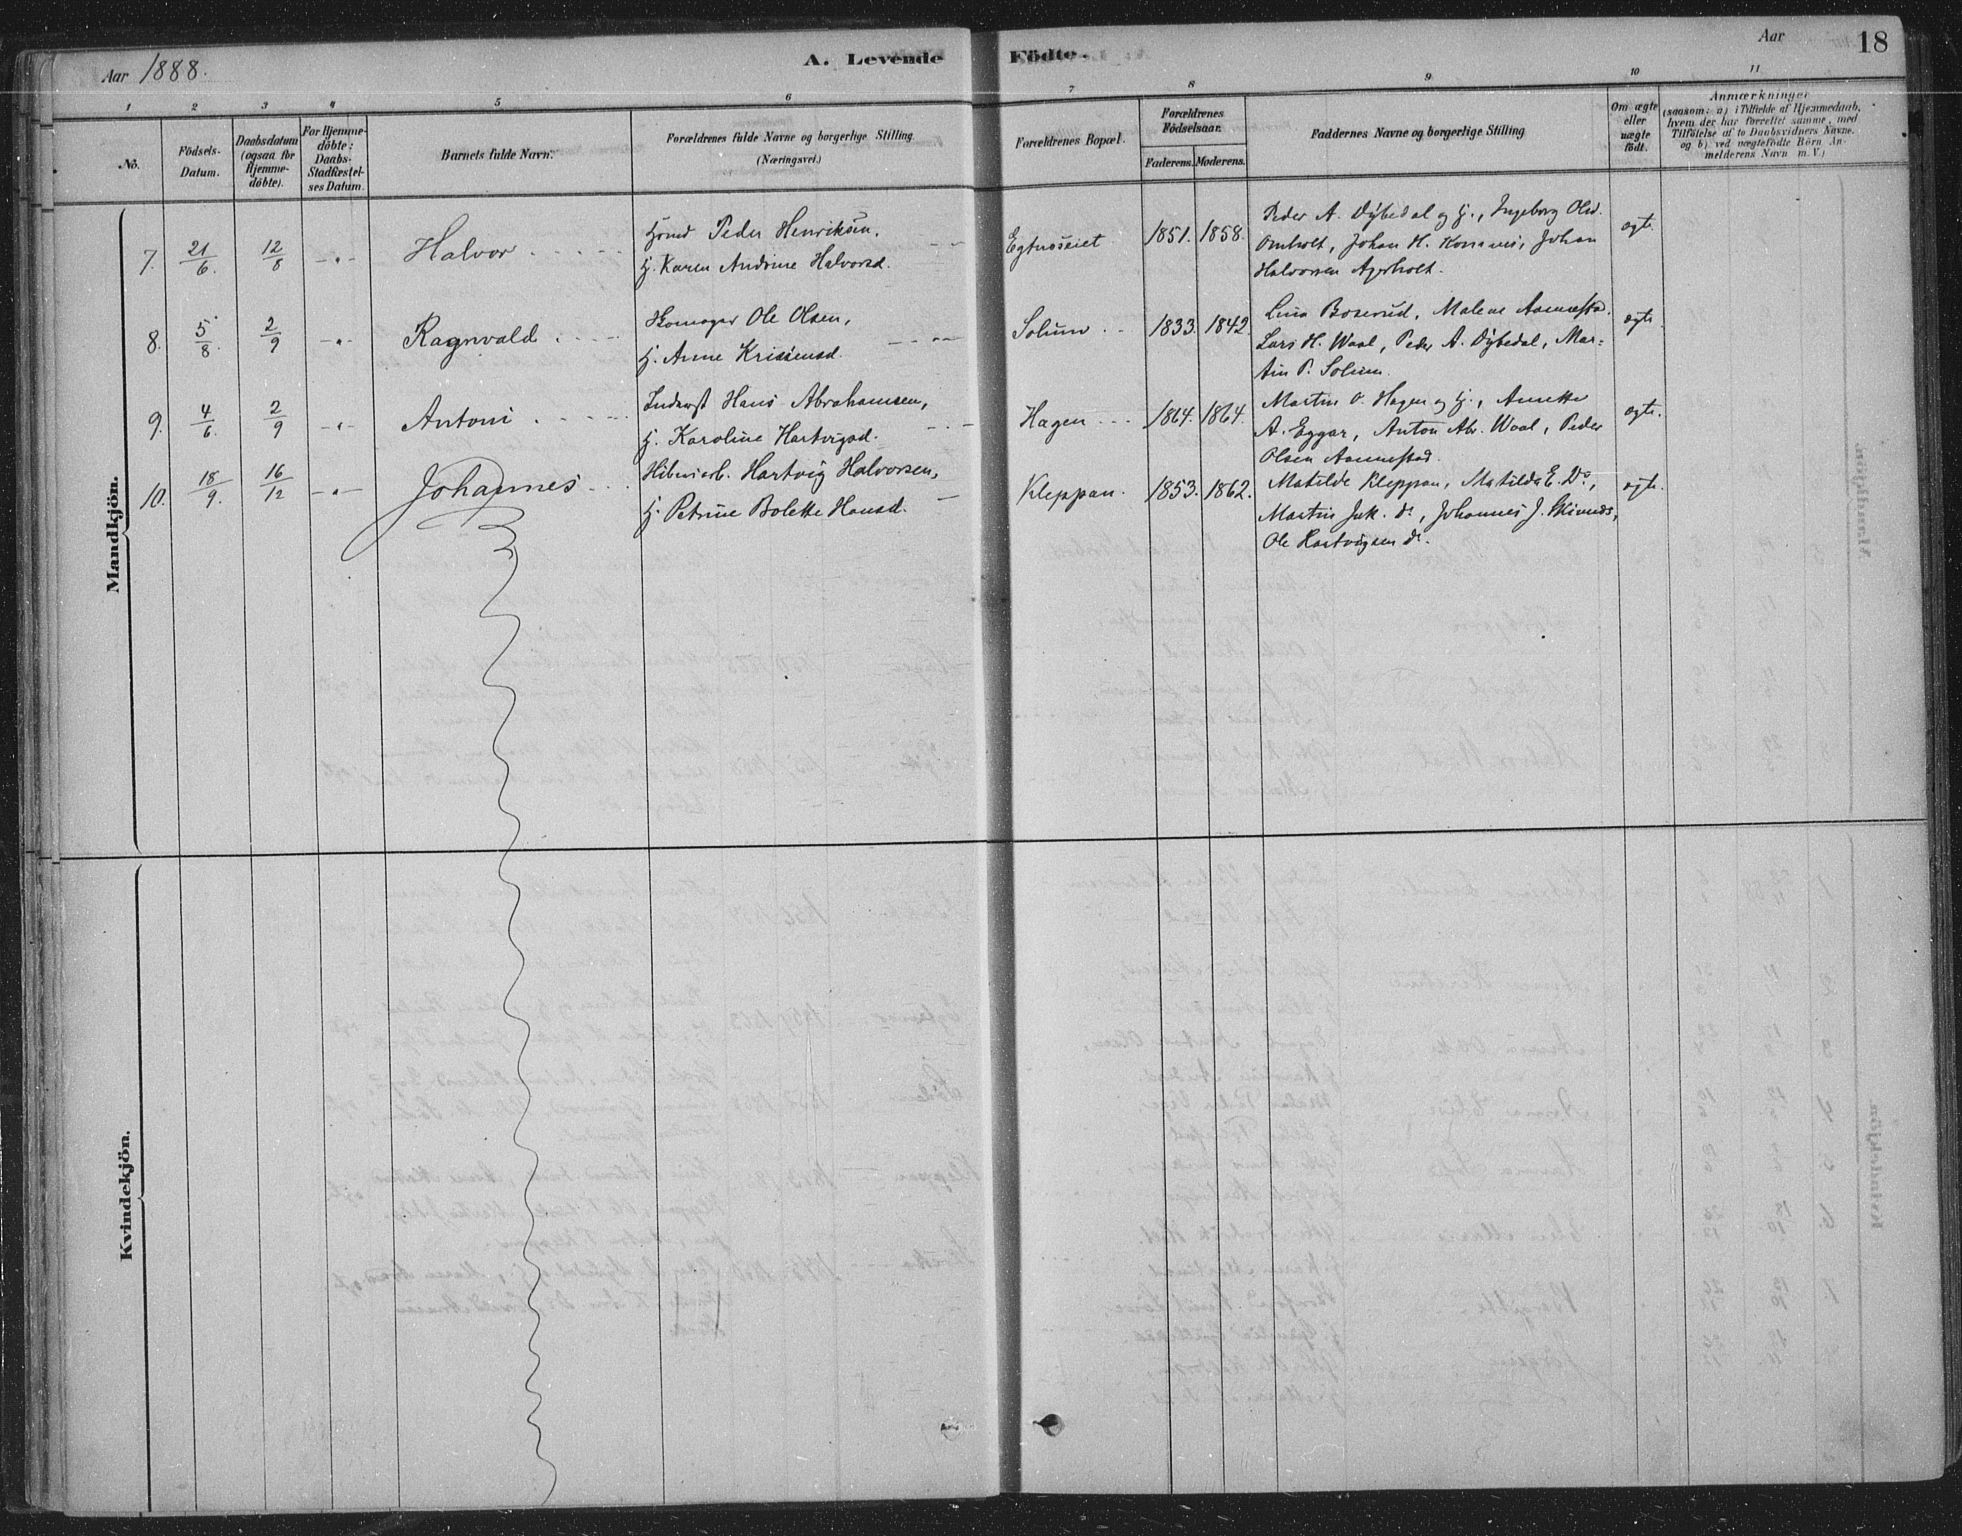 Aar 1888.
A. Levende Födte.
Aar
18
1 2 3 4 5 6 7 8 9 10 11
No.
Födsels-
Datum.
Daabsdatum
(ogsaa for
Hjemme-
döbte).
For Hjemme-
döbte:
Daabs-
Stadfæstel-
ses Datum.
Barnets fulde Navn.
Forældrenes fulde Navne og borgerlige Stilling
(Næringsvei.)
Forældrenes Bopæl.
Forældrenes
Födselsaar.
Faderens. Moderens.
Faddernes Navne og borgerlige Stilling
Om ægte
eller
uægte
födt.
Anmærkninger
(saasom: a) i Tilfælde af Hjemmedaab,
hvem der har forrettet samme, med
Tilföielse af to Daabsvidners Navne.
og b) ved uægtefödte Börn An-
melderens Navn m. V.)
Mandkjön.
7. 21/6. 12/8 Halvor
Peder Henriksen,
Hj. Karen Andrine Halvorsd.
Egtnesseiet 1851. 1858.
Peder A. Dybedal og Hj., Ingeborg Olsd.
Omholt, Johan H. Konsnes, Johan
Halvorsen Agerholt.
ægte.
8. 5/8. 2/9 Ragnvald
Skomager Ole Olsen,
Hj. Anne
Solum 1833. 1842.
Lina Boserud, Malene Aannestad,
Lars H. Waal, Peder A. Dybedal, Mar=
tin P. Solum.
ægte.
9. 4/6. 2/9 Antoni
Inderst Hans Abrahamsen,
Hj. Karoline Hartvigsd.
Hagen 1864. 1864.
Martin O. Hagen og Hj., Annette
A. Eggar, Anton Abr. Waal, Peder
Olsen Aannestad.
ægte.
10. 18/9. 16/12 Johannes
Hartvig Halvorsen,
Hj. Petrine Bolette Hansd.
Kleppan. 1853. 1862.
Matilde Kleppan, Matilde E. Do,
Martin Do, Johannes J.
Ole Hartvigsen Do.
ægte.
Kvindekjön.